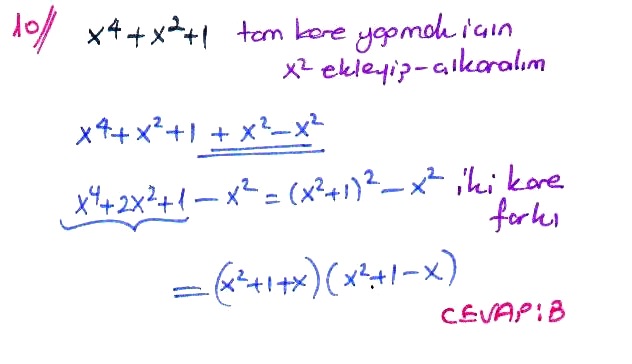 10// x⁴+x²+1 tam kare yapmak için
x² ekleyip-çıkaralım
x⁴+x²+1+x²-x²
x⁴+2x²+1-x²=(x²+1)²-x² iki kare
farkı
=(x²+1+x)(x²+1-x)
CEVAP:B